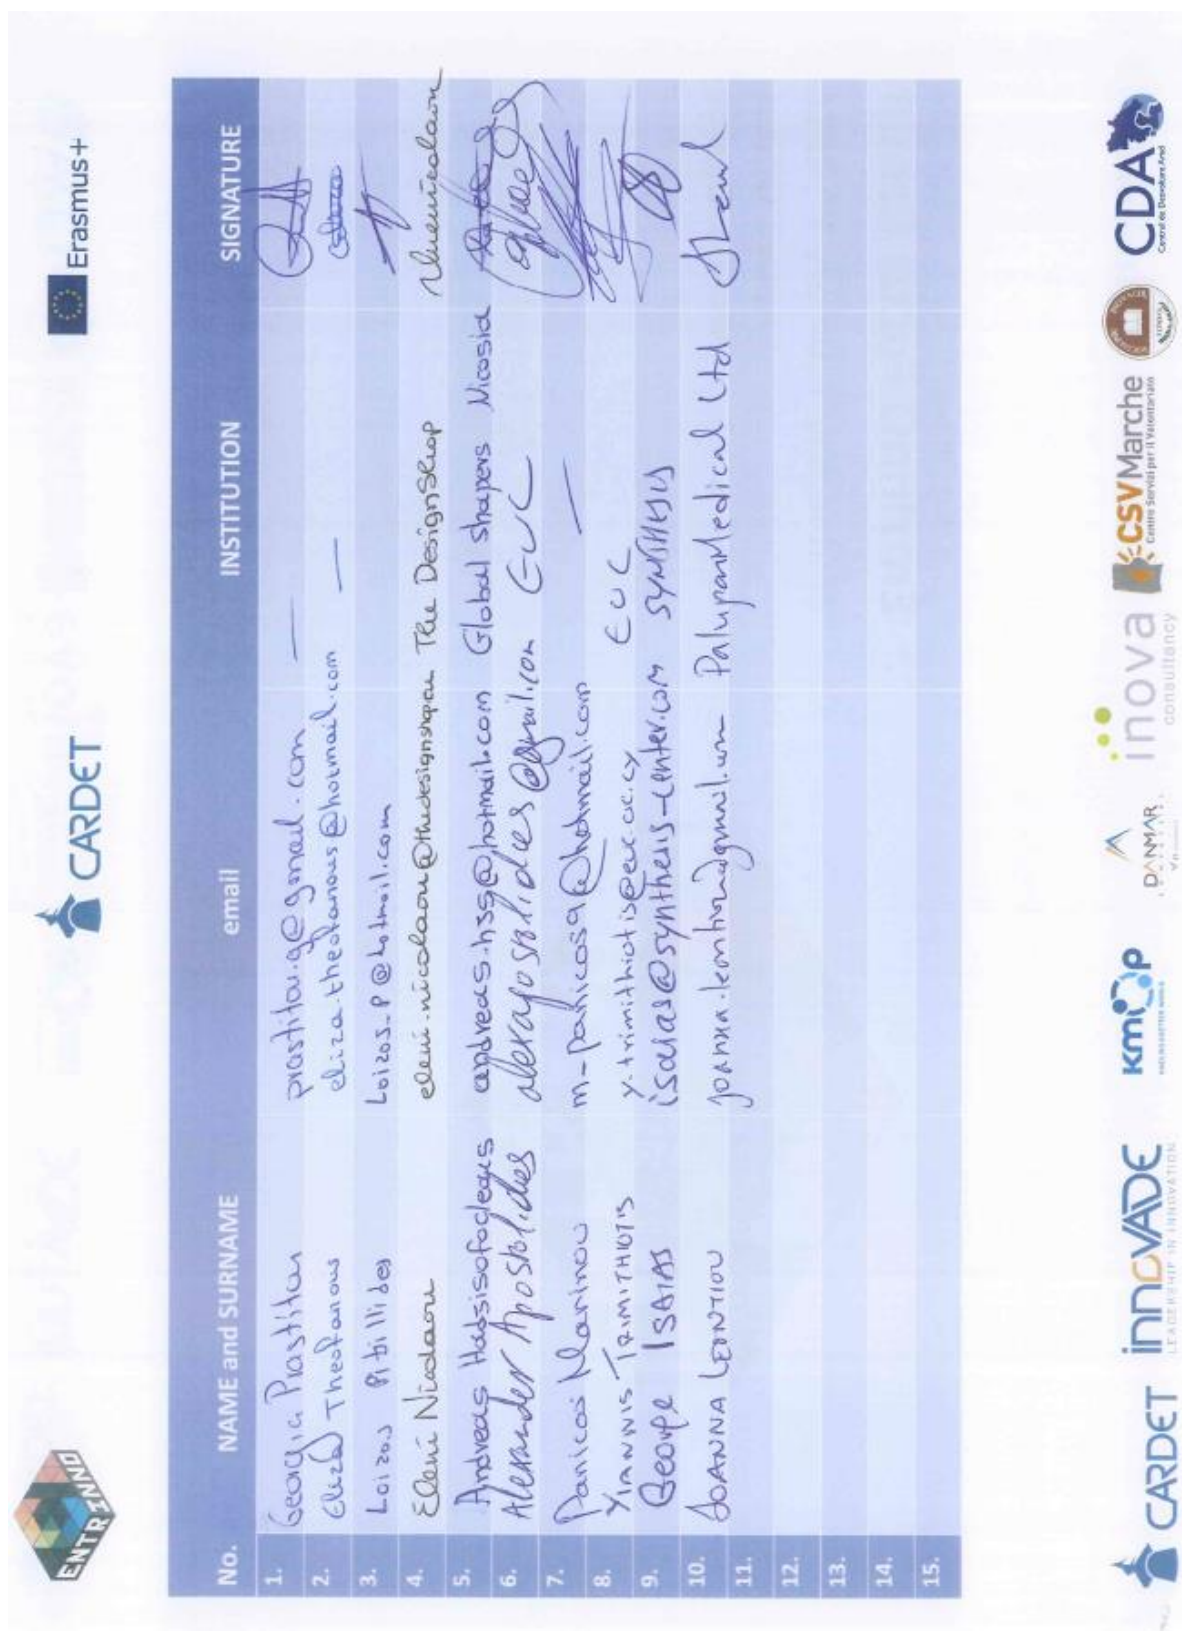 ENTRINNO
CARDET
Erasmus+
No. NAME and SURNAME email INSTITUTION SIGNATURE
1. Georgia Prastitou prastitou.g@gmail.com —
2. Eliza Theofanous eliza.theofanous@hotmail.com —
3. Loizos Pitillides Loizos_P@hotmail.com
4. Eleni Nicolaou eleni.nicolaou@thedesignshop The DesignShop
5. Andreas Hadjisofocleous andreas.h35@hotmail.com Global Shapers Nicosia
6. Alexander Apostolides @gmail.com EUC
7. Panicos Marinou m-panicos9@hotmail.com —
8. YIANNIS TRIMITHIOTIS y.trimithiotis@euc.ac.cy EUC
9. George ISAIAS isaias@synthesis-center.com SYNTHESIS
10. JOANNA LEONTIOU Medical Ltd
11.
12.
13.
14.
15.
CARDET
innOVADE
LEADERSHIP IN INNOVATION
kmop
DANMAR
inova
consultancy
CSVMarche
Centro Servizi per il Volontariato
CDA
Centrul de Dezvoltare Arad